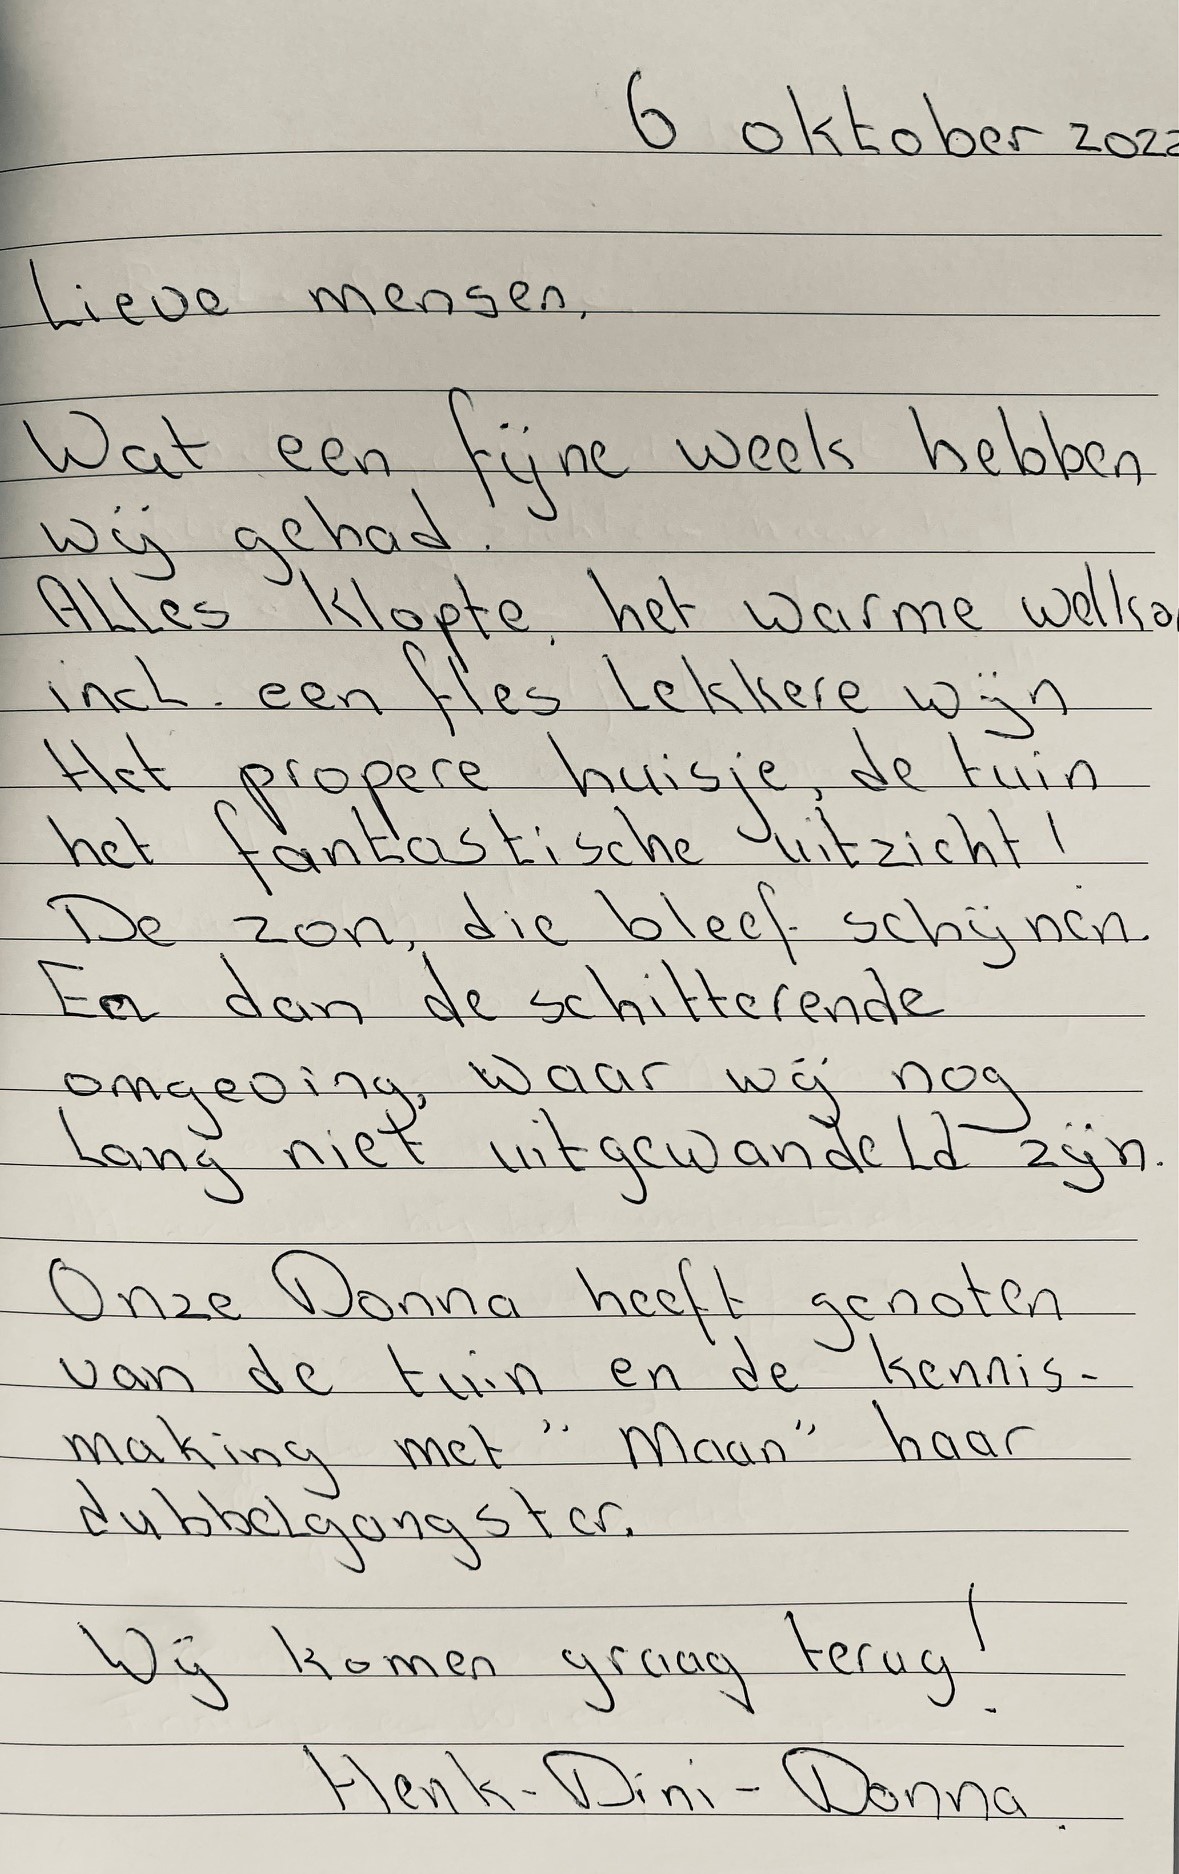 6 oktober 2022
Lieve mensen,
Wat een fijne week hebben
wij gehad.
Alles klopte, het warme welko
incl. een fles lekkere wijn
Het propere huisje, de tuin
het fantastische uitzicht!
De zon, die bleef schijnen.
En dan de schitterende
omgeving, waar wij nog
lang niet uitgewandeld zijn.
Onze Donna heeft genoten
van de tuin en de kennis-
making met "Maan" haar
dubbelgangster.
Wij komen graag terug!
Henk-Dini-Donna.